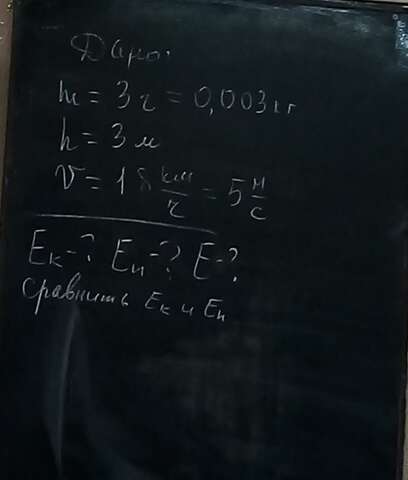 Дано:
m = 3 г = 0,003 кг
h = 3 м
V = 18 км/ч = 5 м/с
Eк-? Eп-? E-?
сравнить Eк и Eп